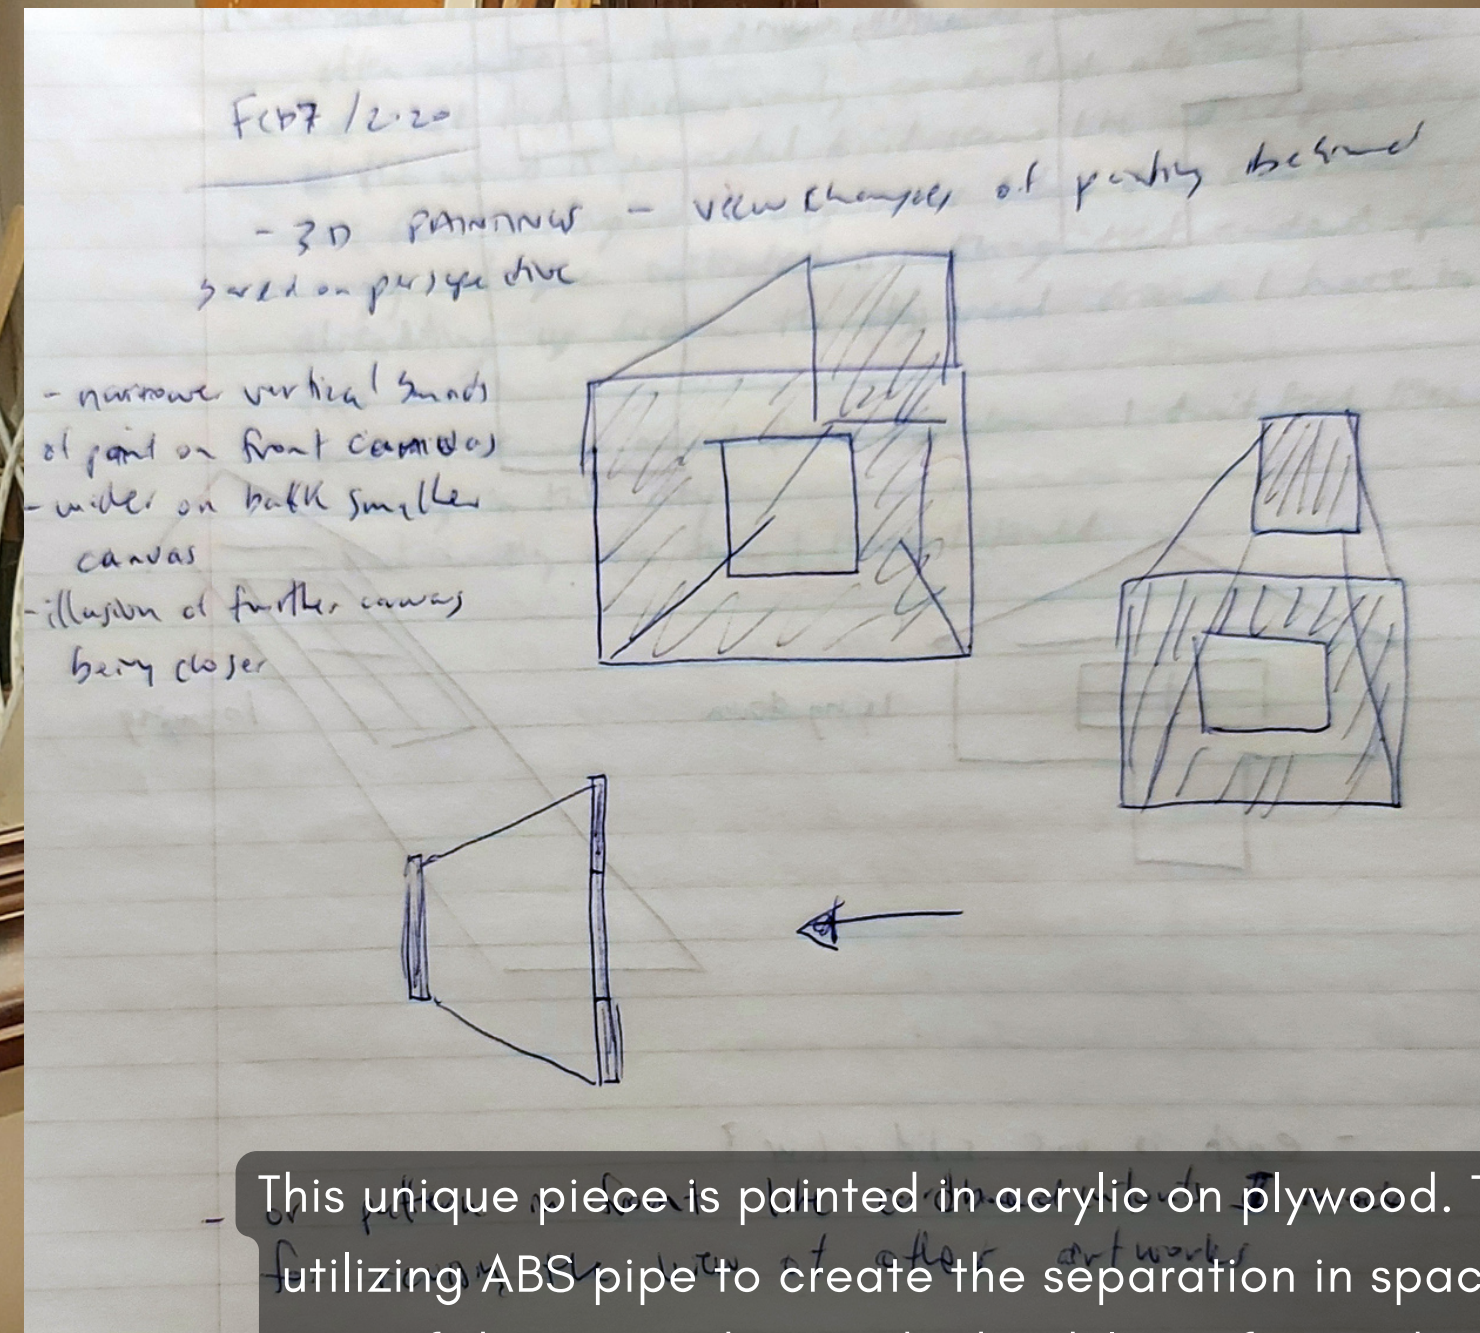 Feb 7 / 2020
- 3D PAINTINGS - view changes of painting behind
based on perspective
- narrower vertical bands
of paint on front canvas
- wider on back smaller
canvas
- illusion of further canvas
being closer
- or pattern in front like
for view of other artworks
This unique piece is painted in acrylic on plywood.
utilizing ABS pipe to create the separation in